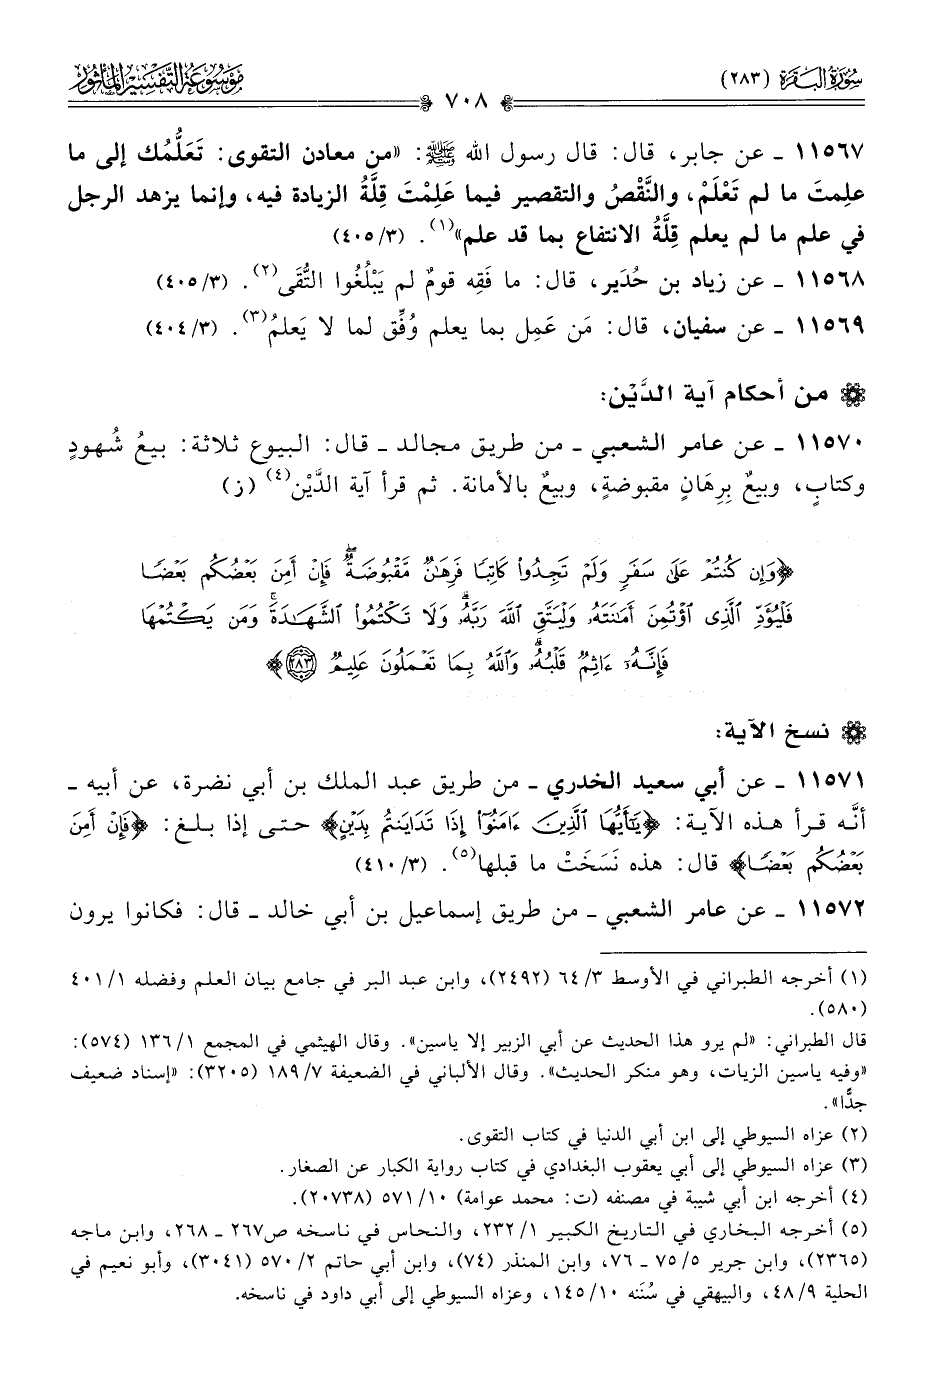 سُورَةُ البَقَرَة (٢٨٣)
٧٠٨
مَوْسُوعَة التَّفْسِير المَأْثُور
١١٥٦٧ ـ عن جابر، قال: قال رسول الله ﷺ: «من معادن التقوى: تَعَلُّمُك إلى ما
علِمتَ ما لم تَعْلَمْ، والنَّقْصُ والتقصير فيما عَلِمْتَ قِلَّةُ الزيادة فيه، وإنما يزهد الرجل
في علم ما لم يعلم قِلَّةُ الانتفاع بما قد علم»(١). (٤٠٥/٣)
١١٥٦٨ ـ عن زياد بن حُدَير، قال: ما فَقِه قومٌ لم يَبْلُغُوا التُّقَى(٢). (٤٠٥/٣)
١١٥٦٩ ـ عن سفيان، قال: مَن عَمِل بما يعلم وُفِّق لما لا يَعلمُ(٣). (٤٠٤/٣)
من أحكام آية الدَّيْن:
١١٥٧٠ ـ عن عامر الشعبي ـ من طريق مجالد ـ قال: البيوع ثلاثة: بيعُ شُهودٍ
وكتابٍ، وبيعٌ بِرِهَانٍ مقبوضةٍ، وبيعٌ بالأمانة. ثم قرأ آية الدَّيْن(٤). (ز)
﴿وَإِن كُنتُمْ عَلَىٰ سَفَرٍ وَلَمْ تَجِدُوا۟ كَاتِبًا فَرِهَـٰنٌ مَّقْبُوضَةٌ ۖ فَإِنْ أَمِنَ بَعْضُكُم بَعْضًا
فَلْيُؤَدِّ ٱلَّذِى ٱؤْتُمِنَ أَمَـٰنَتَهُۥ وَلْيَتَّقِ ٱللَّهَ رَبَّهُۥ ۗ وَلَا تَكْتُمُوا۟ ٱلشَّهَـٰدَةَ ۚ وَمَن يَكْتُمْهَا
فَإِنَّهُۥٓ ءَاثِمٌ قَلْبُهُۥ ۗ وَٱللَّهُ بِمَا تَعْمَلُونَ عَلِيمٌ ٢٨٣﴾
نسخ الآية:
١١٥٧١ ـ عن أبي سعيد الخدري ـ من طريق عبد الملك بن أبي نضرة، عن أبيه ـ
أنَّه قرأ هذه الآية: ﴿يَـٰٓأَيُّهَا ٱلَّذِينَ ءَامَنُوٓا۟ إِذَا تَدَايَنتُم بِدَيْنٍ﴾ حتى إذا بلغ: ﴿فَإِنْ أَمِنَ
بَعْضُكُم بَعْضًا﴾ قال: هذه نَسَخَتْ ما قبلها(٥). (٤١٠/٣)
١١٥٧٢ ـ عن عامر الشعبي ـ من طريق إسماعيل بن أبي خالد ـ قال: فكانوا يرون
(١) أخرجه الطبراني في الأوسط ٣/ ٦٤ (٢٤٩٢)، وابن عبد البر في جامع بيان العلم وفضله ١/ ٤٠١
(٥٨٠).
قال الطبراني: «لم يرو هذا الحديث عن أبي الزبير إلا ياسين». وقال الهيثمي في المجمع ١/ ١٣٦ (٥٧٤):
«وفيه ياسين الزيات، وهو منكر الحديث». وقال الألباني في الضعيفة ٧/ ١٨٩ (٣٢٠٥): «إسناد ضعيف
جدًّا».
(٢) عزاه السيوطي إلى ابن أبي الدنيا في كتاب التقوى.
(٣) عزاه السيوطي إلى أبي يعقوب البغدادي في كتاب رواية الكبار عن الصغار.
(٤) أخرجه ابن أبي شيبة في مصنفه (ت: محمد عوامة) ١٠/ ٥٧١ (٢٠٧٣٨).
(٥) أخرجه البخاري في التاريخ الكبير ١/ ٢٣٢، والنحاس في ناسخه ص٢٦٧ ـ ٢٦٨، وابن ماجه
(٢٣٦٥)، وابن جرير ٥/ ٧٥ ـ ٧٦، وابن المنذر (٧٤)، وابن أبي حاتم ٢/ ٥٧٠ (٣٠٤١)، وأبو نعيم في
الحلية ٩/ ٤٨، والبيهقي في سُنَنه ١٠/ ١٤٥، وعزاه السيوطي إلى أبي داود في ناسخه.